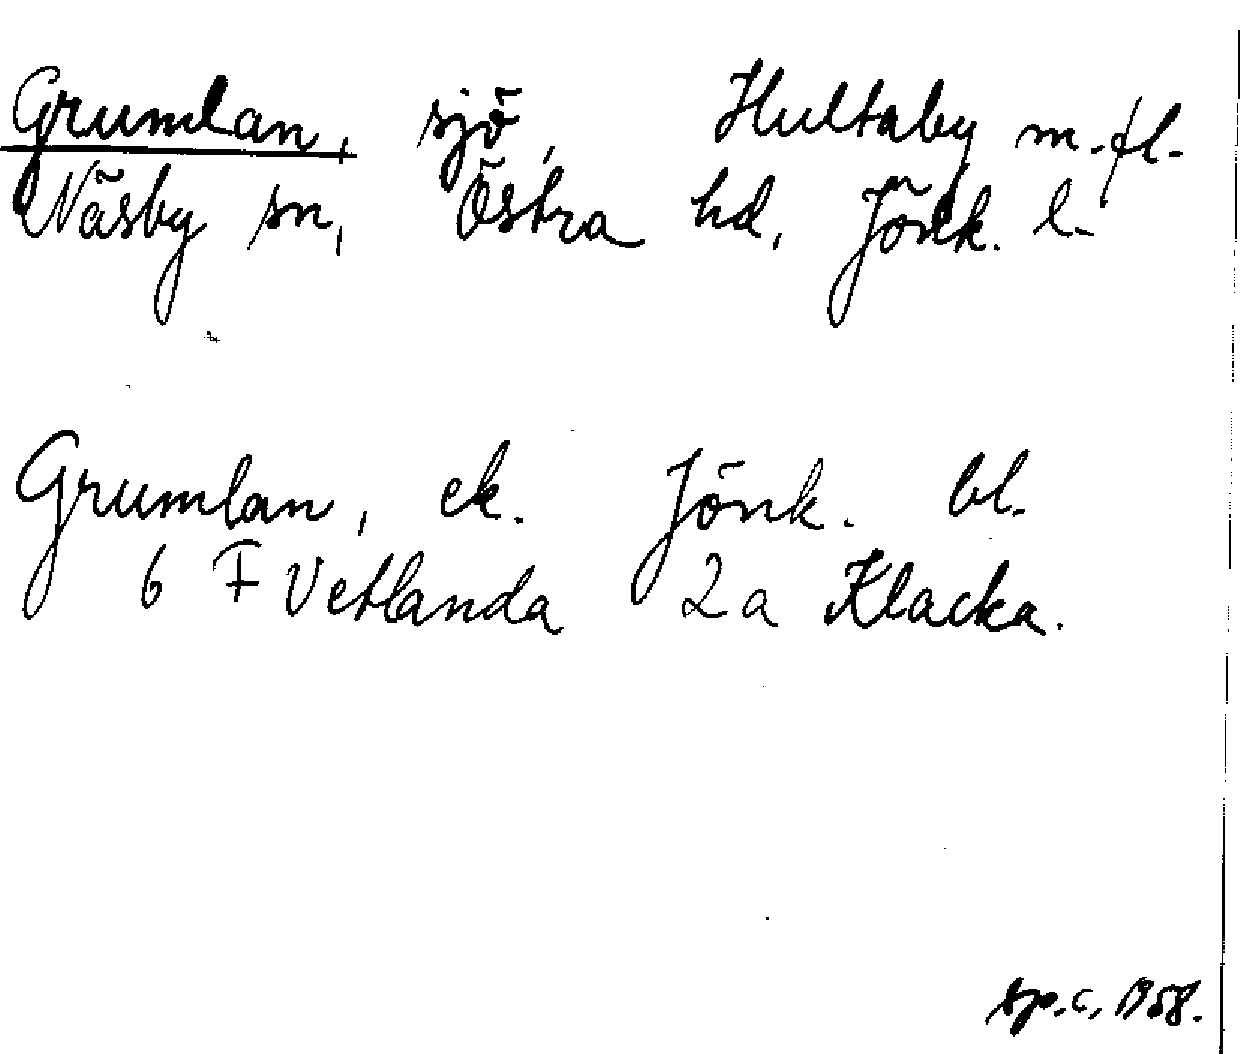 Grumlan, sjö, Hultaby m.fl.
Näsby sn, Östra hd, Jönk. l.
Grumlan, ek. Jönk. bl.
6 F Vetlanda 2a Klacka.
sp.c. 1958.